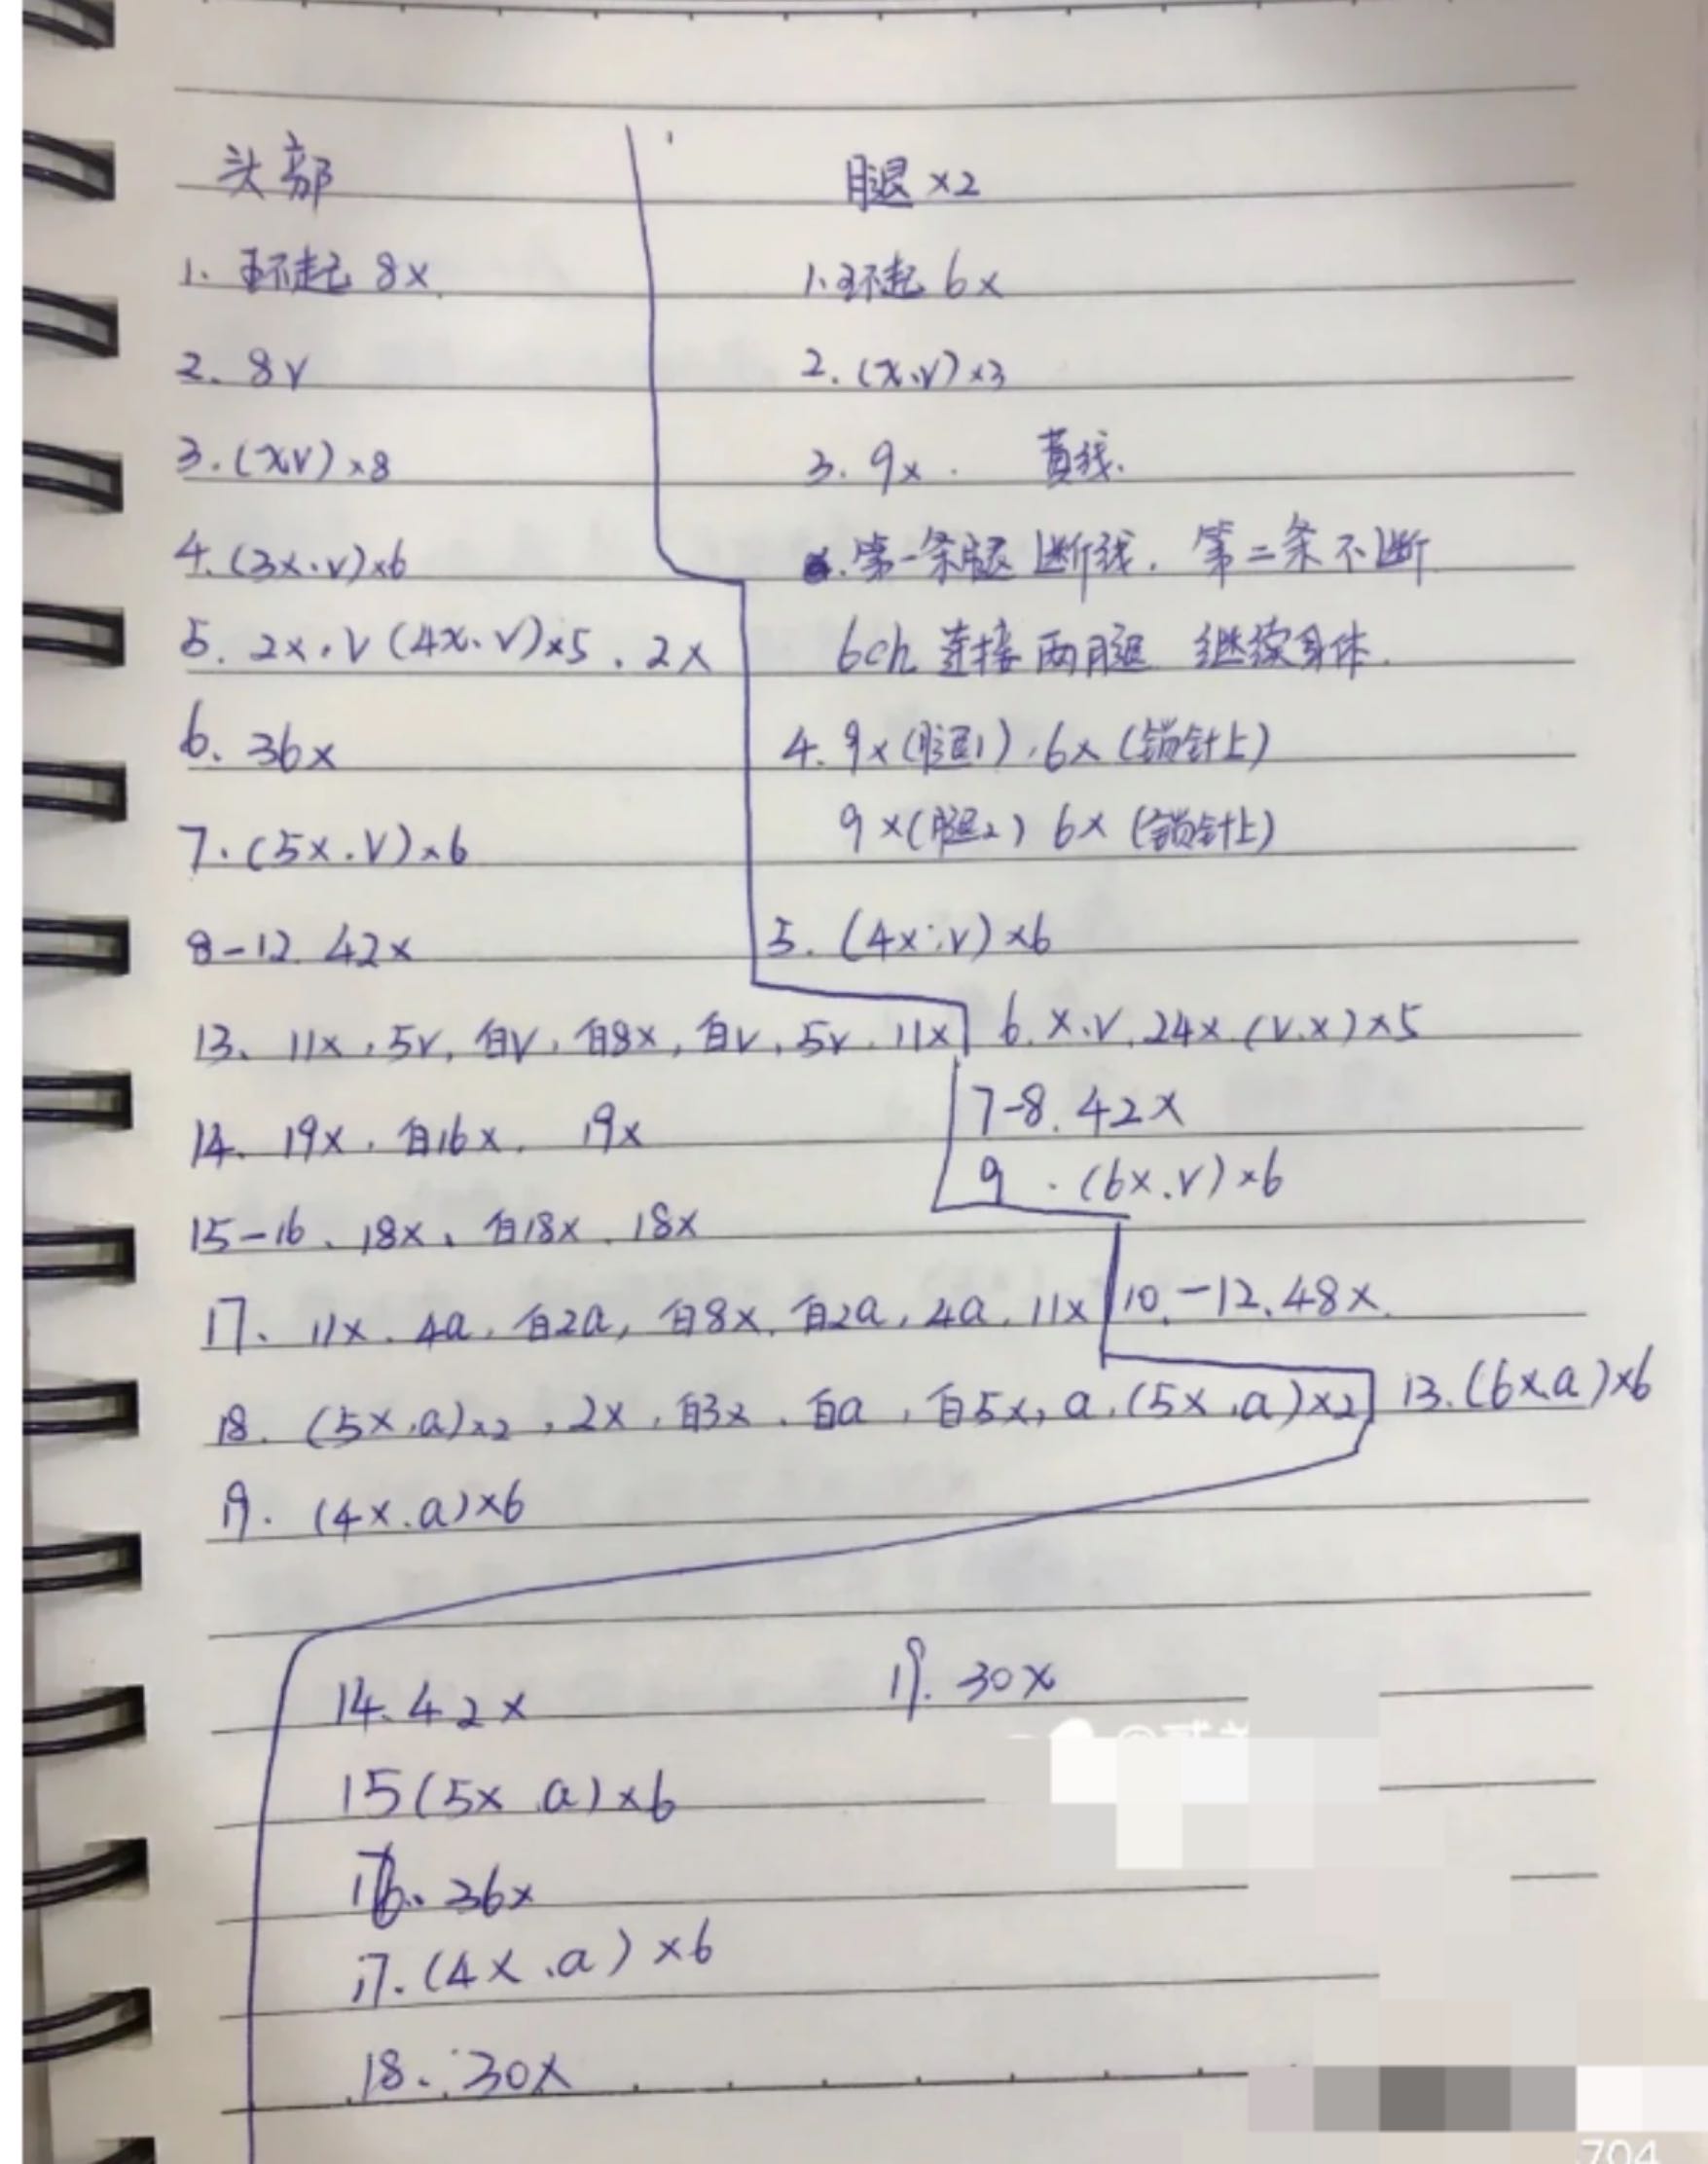 头部
1. 环起 8x
2. 8v
3. (xv)×8
4. (3x.v)×6
5. 2x.v(4x.v)×5.2x
6. 36x
7. (5x.v)×6
8-12 42x
13. 11x,5v,白v,白8x,白v,5v,11x
14. 19x,白16x, 19x
15-16、18x、白18x、18x
17、11x、4a,白2a,白8x,白2a,4a,11x
18. (5x.a)×2,2x,白3x、白a,白5x,a,(5x.a)×2
19. (4x.a)×6
腿×2
1.环起 6x
2.(x.v)×3
3. 9x. 黄线.
第一条腿断线. 第二条不断
6ch 连接两腿 继续身体.
4. 9x(腿1).6x(锁针上)
9x(腿2) 6x(锁针上)
5. (4x.v)×6
6. x.v.24x.(v.x)×5
7-8. 42x
9.(6x.v)×6
10.-12.48x.
13.(6x.a)×6
14.42x
15(5x.a)×6
16. 36x
17.(4x.a)×6
18. 30x
19. 30x
704